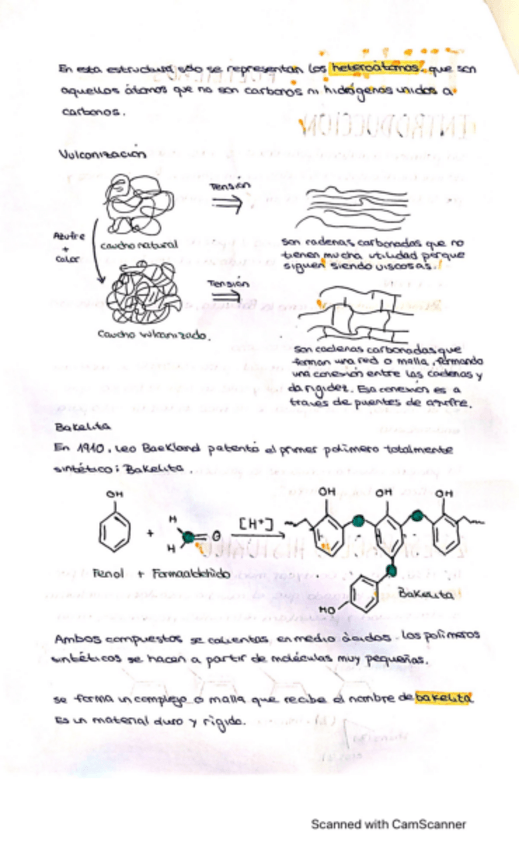 En esta estructura sólo se representan los heteroátomos, que son
aquellos átomos que no son carbonos ni hidrógenos unidos a
carbonos.
Vulcanización
Tensión
Azufre
+
calor
caucho natural
son cadenas carbonadas que no
tienen mucha utilidad porque
siguen siendo viscosas.
Tensión
Caucho vulcanizado.
Son cadenas carbonadas que
forman una red o malla, formando
una conexión entre las cadenas y
da rigidez. Esa conexión es a
través de puentes de azufre.
Bakelita
En 1910, Leo Baekland patentó el primer polímero totalmente
sintético: Bakelita.
OH
+
H
H
O
[H+]
OH
OH
OH
Fenol + Formaldehído
HO
Bakelita
Ambos compuestos se calientan, en medio ácidos. Los polímeros
sintéticos se hacen a partir de moléculas muy pequeñas.
se forma un complejo o malla que recibe el nombre de bakelita
Es un material duro y rígido.
Scanned with CamScanner